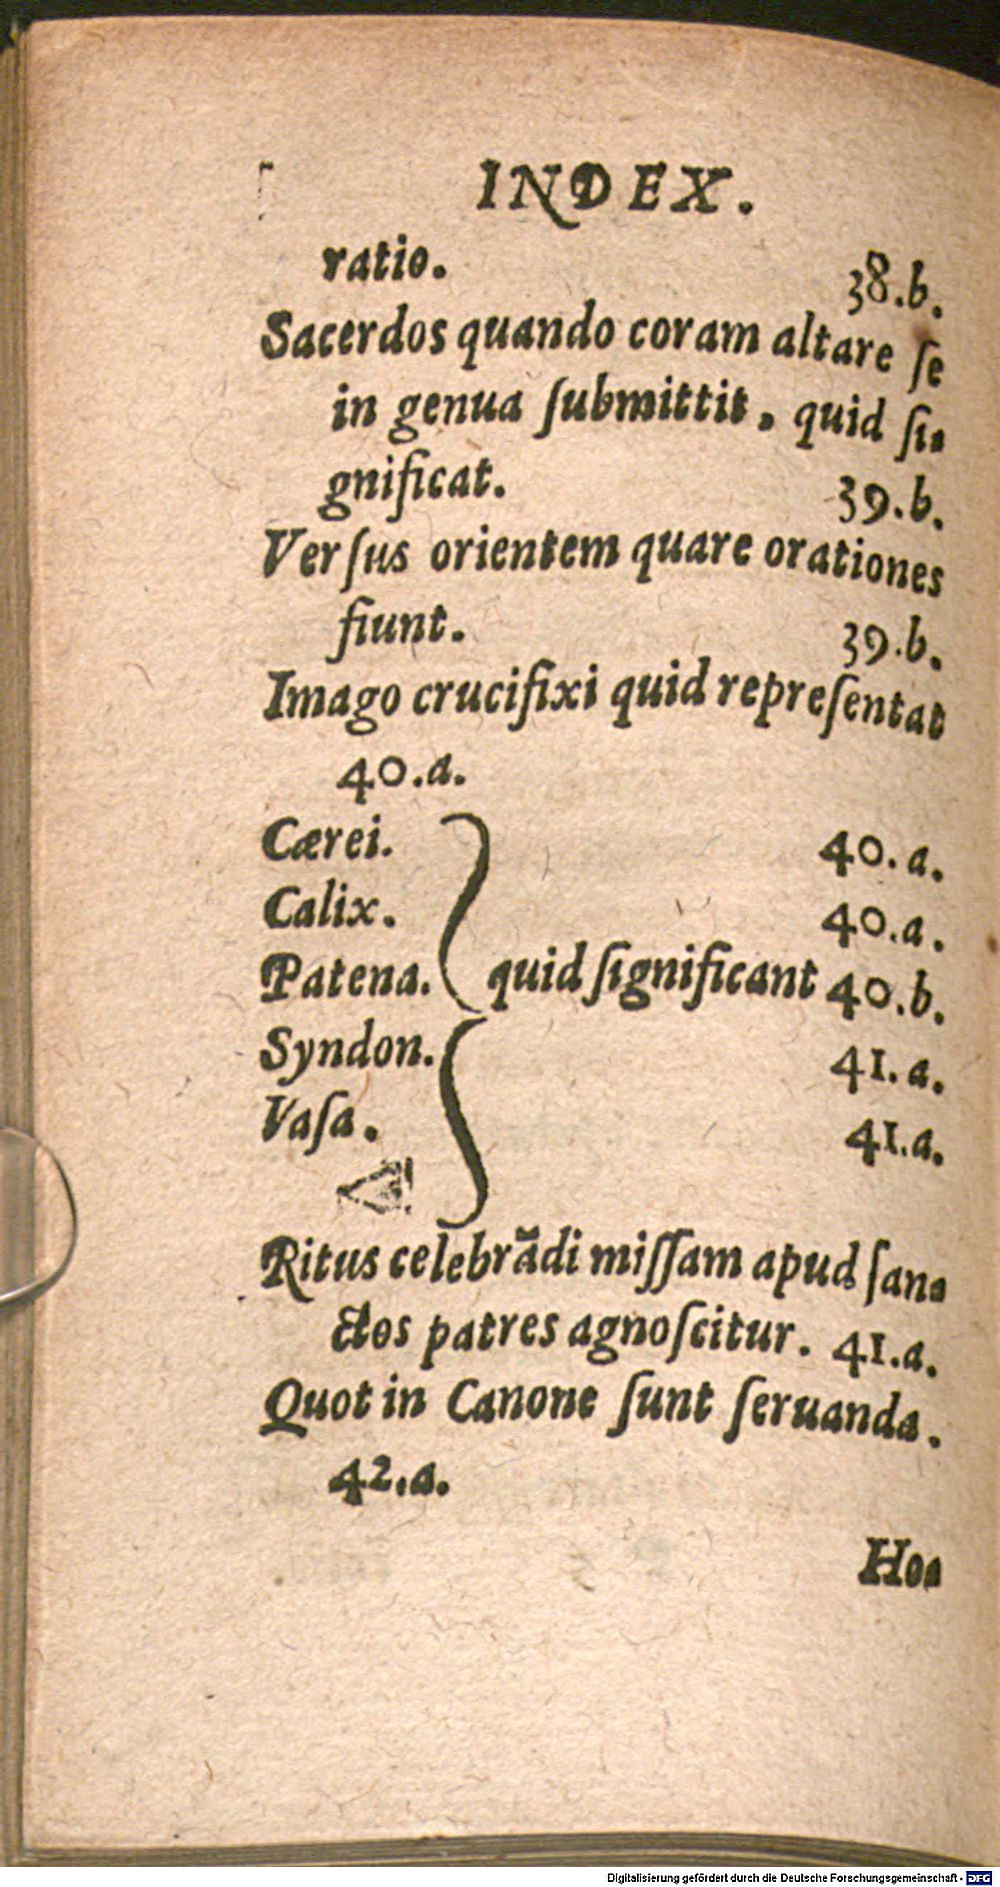 INDEX.
ratio. 38.b.
Sacerdos quando coram altare ſe
in genua ſubmittit, quid ſi-
gnificat. 39.b.
Verſus orientem quare orationes
fiunt. 39.b.
Imago crucifixi quid repreſentat
40.a.
Cærei. 40.a.
Calix. 40.a.
Patena. quid ſignificant 40.b.
Syndon. 41.a.
Vaſa. 41.a.
Ritus celebrãdi miſſam apud ſan-
ctos patres agnoſcitur. 41.a.
Quot in Canone ſunt ſeruanda.
42.a.
Ho-
Digitalisierung gefördert durch die Deutsche Forschungsgemeinschaft - DFG